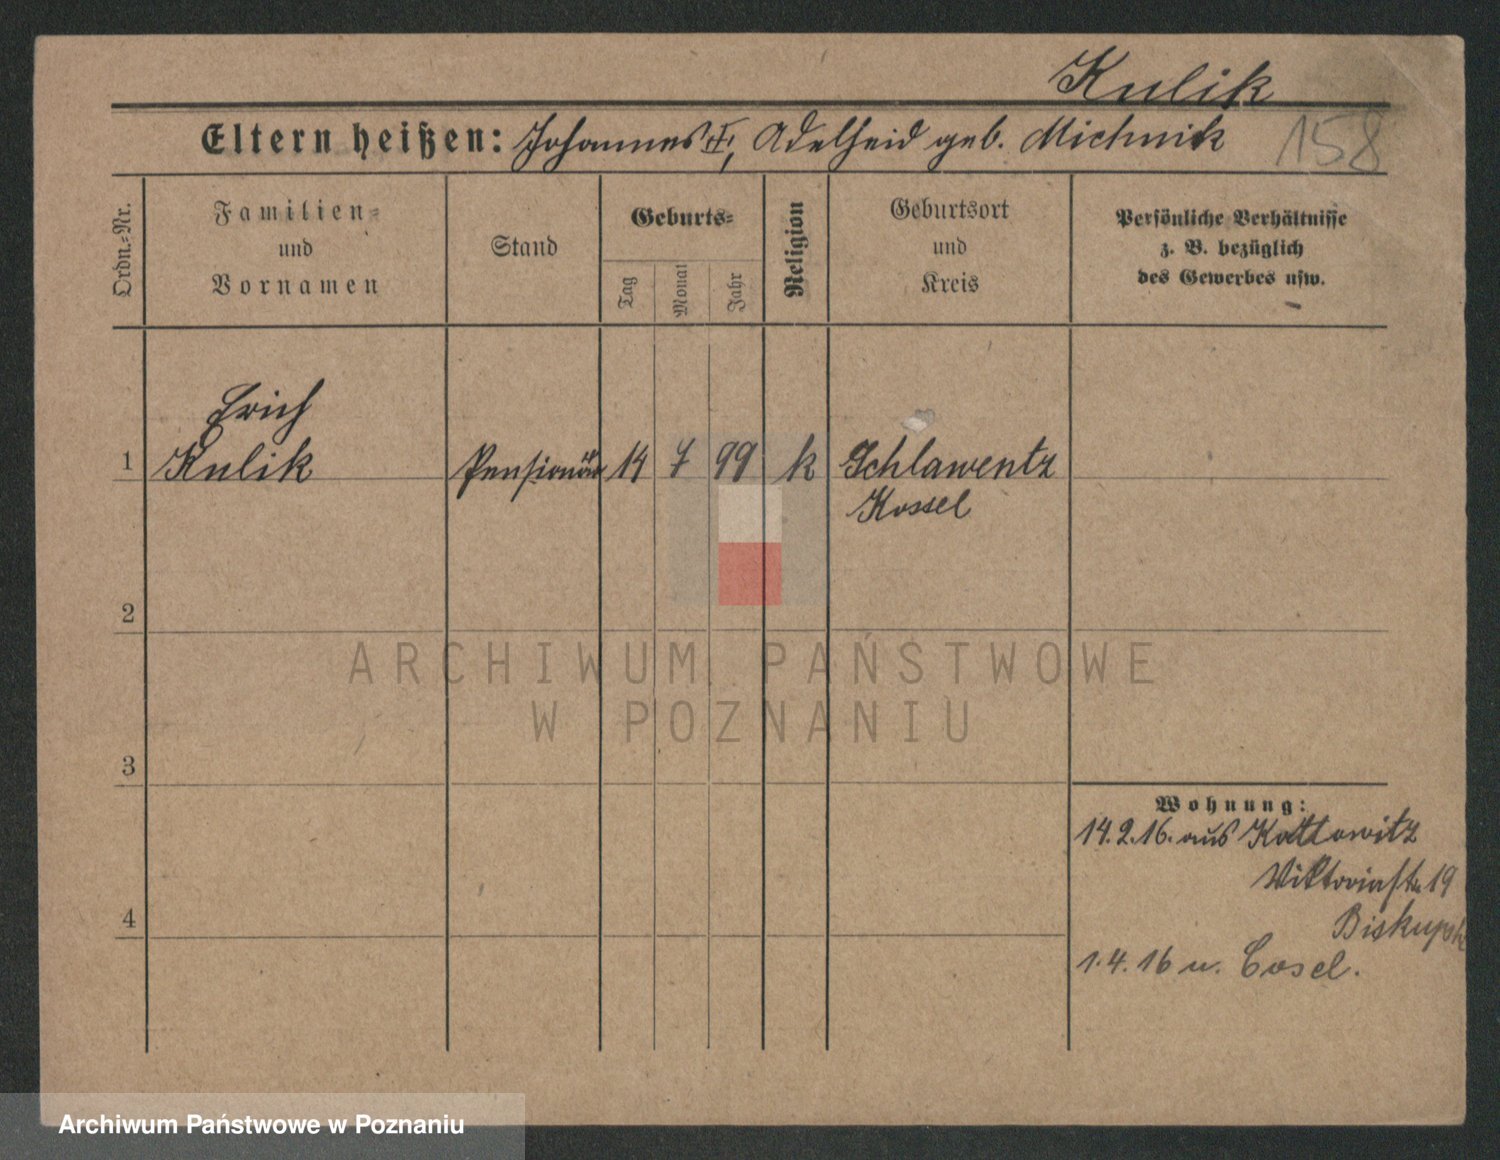 Kulik
Eltern heißen: Johannes ✝, Adelheid geb. Michnik
158
Ordn.=Nr.
Familien=
und
Vornamen
Stand
Geburts=
Tag
Monat
Jahr
Religion
Geburtsort
und
Kreis
Persönliche Verhältnisse
z. B. bezüglich
des Gewerbes usw.
Erich
1 Kulik Pensionär 14 7 99 k Schlawentz
Kossel
2
ARCHIWUM PAŃSTWOWE
W POZNANIU
3
Wohnung:
14.2.16. aus Kattowitz
Viktoriastr 19
4
1.4.16 n. Cosel.
Archiwum Państwowe w Poznaniu